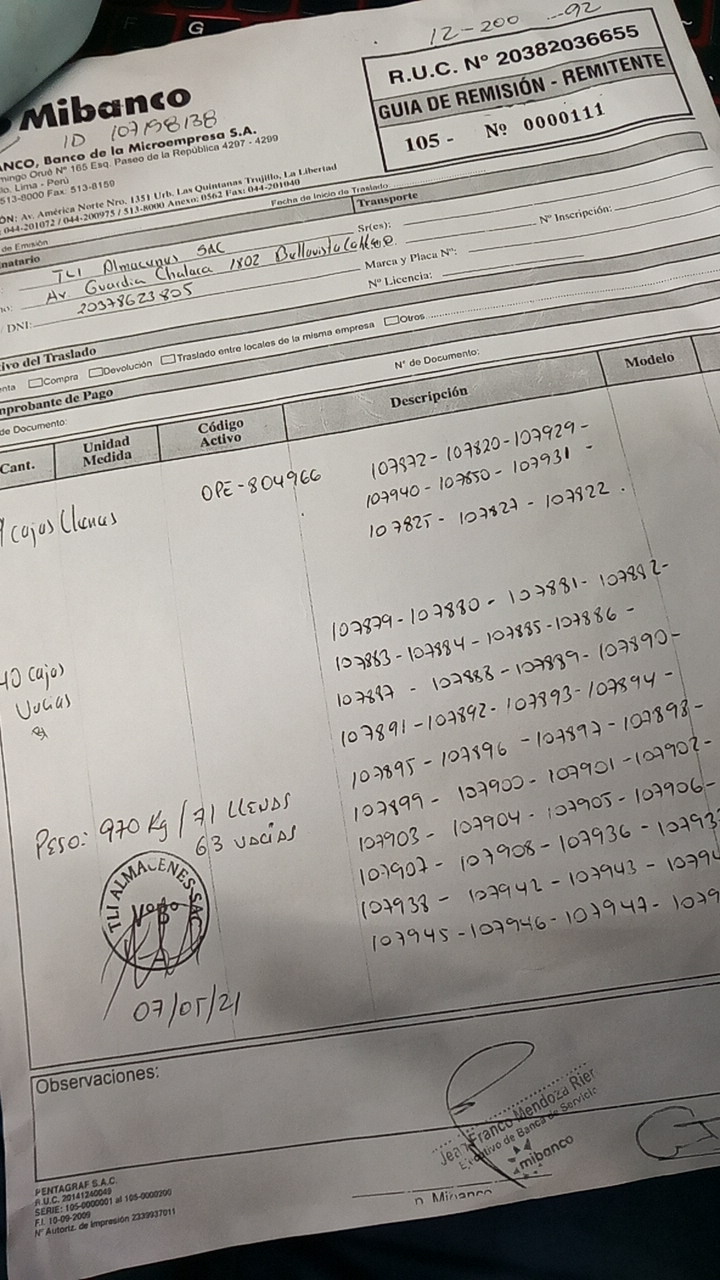 G
12-200 -92
Mibanco
R.U.C. Nº 20382036655
GUIA DE REMISIÓN - REMITENTE
105 - Nº 0000111
ID 107198138
ANCO, Banco de la Microempresa S.A.
mingo Orué Nº 165 Esq. Paseo de la República 4297 - 4299
lo, Lima - Perú
513-8000 Fax: 513-8159
ÓN: Av. América Norte Nro. 1351 Urb. Las Quintanas Trujillo, La Libertad
044-201072 / 044-200975 / 513-8000 Anexo: 0562 Fax: 044-201040
de Emisión
Fecha de Inicio de Traslado
natario
Transporte
TLI Almacenes SAC
Sr(es):
Av. Guardia Chalaca 1802 Bellavista Callao
Nº Inscripción:
20378623805
Marca y Placa Nº:
DNI:
Nº Licencia:
ivo del Traslado
enta Compra Devolución Traslado entre locales de la misma empresa Otros
mprobante de Pago
Nº de Documento:
de Documento:
Cant. Unidad Medida Código Activo Descripción Modelo
cajas llenas OPE-804966 107872-107820-107929-
107940-107850-107931-
107825-107827-107822.
107879-107880-107881-107882-
107883-107884-107885-107886-
40 cajas
Vacias
107887-107888-107889-107890-
107891-107892-107893-107894-
107895-107896-107897-107898-
107899-107900-107901-107902-
107903-107904-107905-107906-
107907-107908-107936-10793
107938-107942-107943-10794
107945-107946-107947-1079
Peso: 970 Kg / 71 LLENAS
63 VACIAS
TLI ALMACENES SAC
VoBo
07/05/21
Observaciones:
Jean Franco Mendoza Rier
Ejecutivo de Banca de Servicio
mibanco
p. Mibanco
PENTAGRAF S.A.C.
R.U.C. 20141240049
SERIE: 105-0000001 al 105-0000200
F.I. 10-09-2009
Nº Autoriz. de Impresión 2339937011